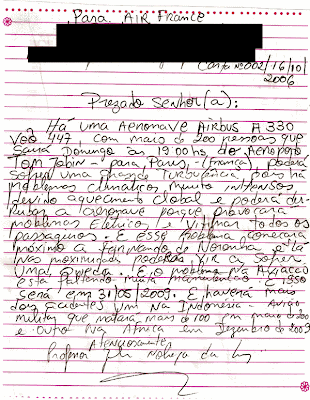 Para AIR FRANCE
Carta Nº002/16/10/
2006
Prezado Senhor(a):
Há uma Aeronave AIRBUS A 330
Voo 447 com mais de 200 pessoas que
Sairá Domingo as 19:00hs do Aeroporto
Tom Jobin - para Paris - (França), poderá
sofrer uma Grande Turbulência, pois há
problemas climaticos muito intensos
devido aquecimento Global e poderá der-
rubar a aeronave porque provocara
problemas Eletrico e Vitimar todos os
passageiros. E esse problema começara
proximo a Fernando de Noronha e la
nas proximidades poderás vir a sofrer
uma Queda. E o problema na Aviação
esta faltando muita manutenção. E isso
será em 31/05/2009. E haverá mais
dois acidentes um na Indonésia - Avião
militar que matará mais de 100 em maio de 2009
e outro na Africa em Dezembro de 2009
Atenciosamente
Professor